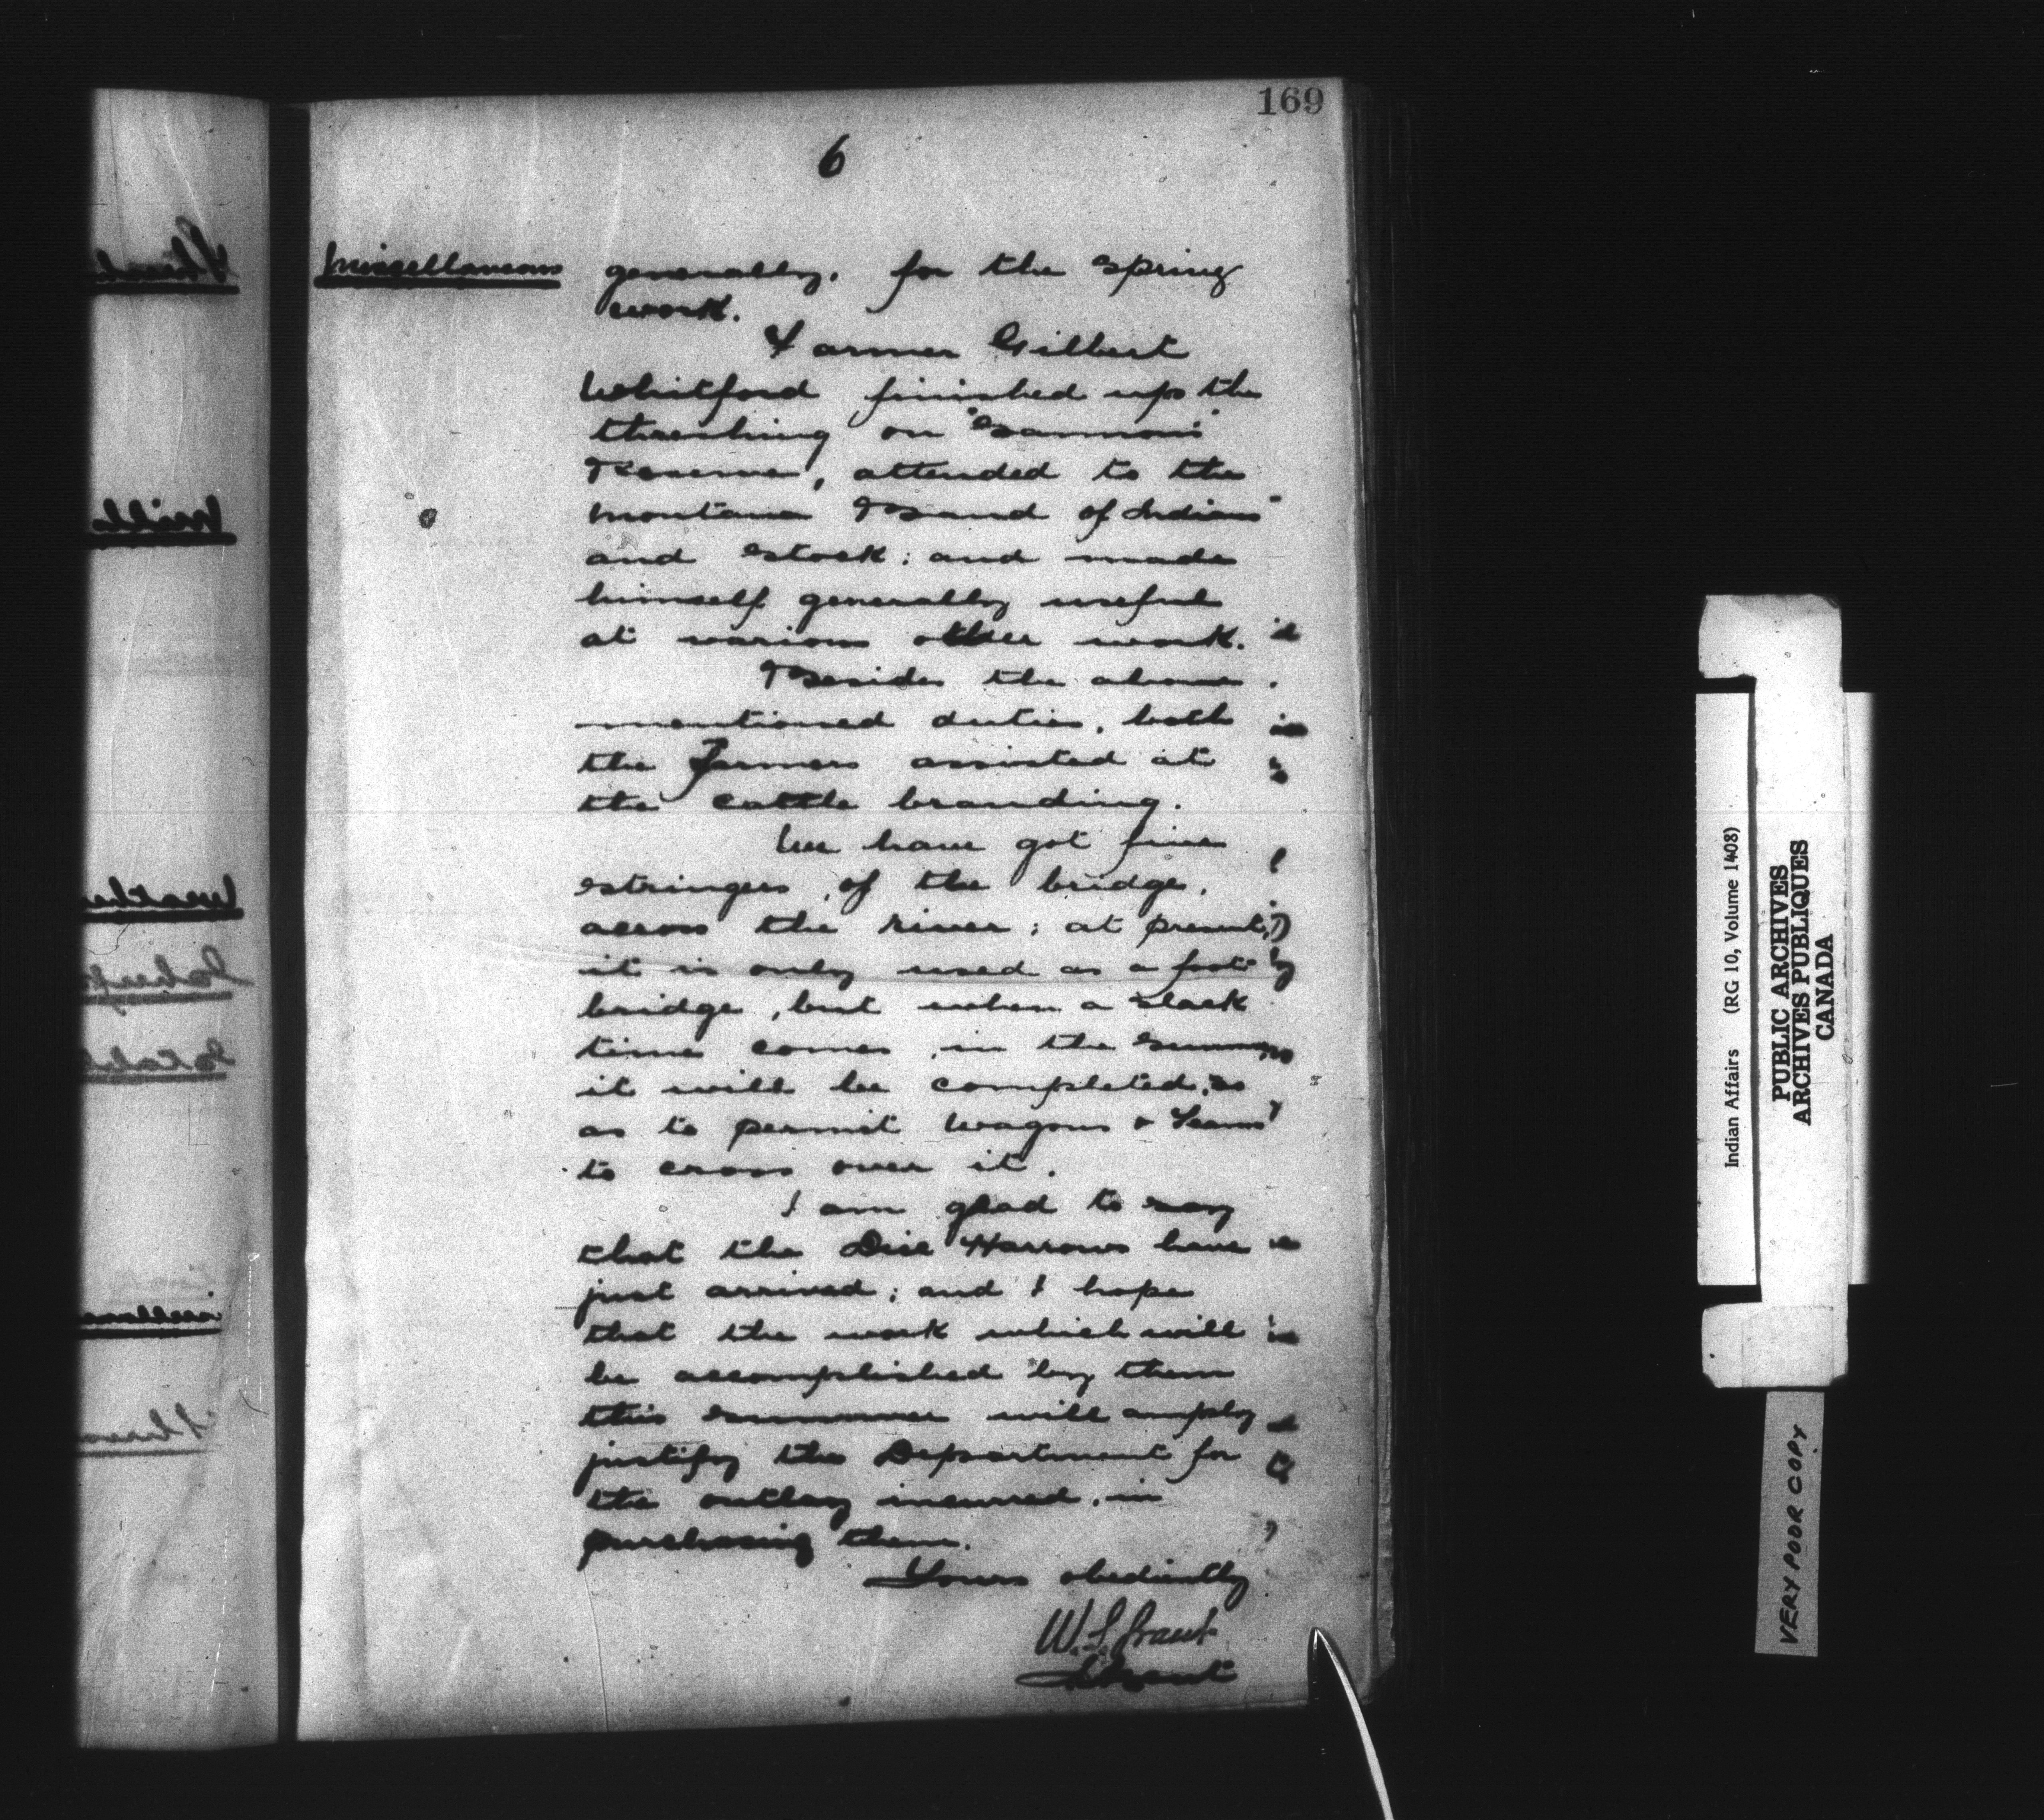 169
6
Miscellaneous generally, for the spring
work.
Farmer Gilbert
Whitford finished up the
threshing on "Samson's"
Reserve, attended to the
Montana Band of Indians
and stock; and made
himself generally useful
at various other work.
Besides the above
mentioned duties, both
the Farmers assisted at
the cattle branding.
We have got five
stringers, of the bridge,
across the river; at present,
it is only used as a foot
bridge, but when a slack
time comes, in the summer
it will be completed, so
as to permit wagons & Teams
to cross over it.
I am glad to say
that the Disc Harrows have
just arrived; and I hope
that the work which will
be accomplished by them
this summer will amply
justify the Department for
the outlay incurred, in
purchasing them.
Yours obediently
W.S. Grant
Agent
Indian Affairs (RG 10, Volume 1408)
PUBLIC ARCHIVES
ARCHIVES PUBLIQUES
CANADA
VERY POOR COPY